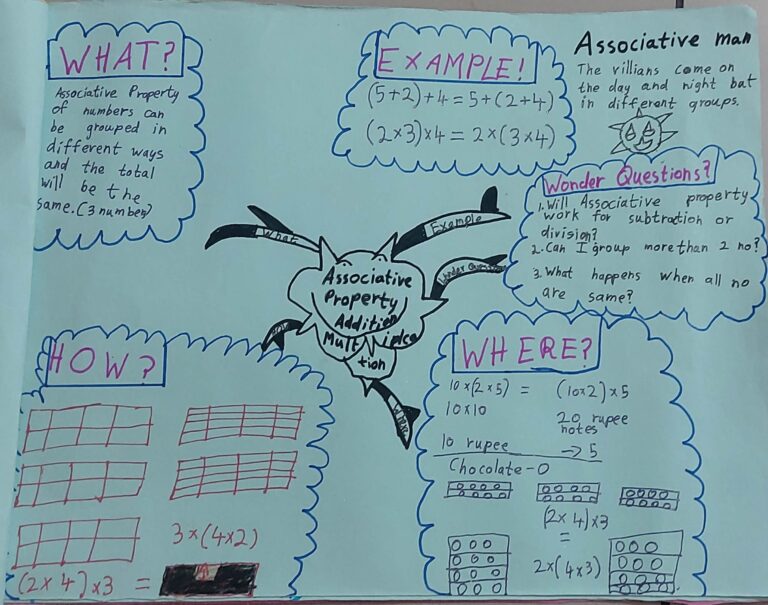 WHAT?
Associative Property
of numbers can
be grouped in
different ways
and the total
will be the
same.(3 number)
EXAMPLE!
(5+2)+4=5+(2+4)
(2×3)×4=2×(3×4)
Associative man
The villians come on
the day and night but
in different groups.
Wonder Questions?
1.Will Associative property
work for subtration or
division?
2.Can I group more than 2 no?
3.What happens when all no
are same?
What
Example
Wonder Question
Associative
Property
Addition
Multiplica
tion
Where
HOW?
3×(4×2)
(2×4)×3 =
WHERE?
10×(2×5) = (10×2)×5
10×10
20 rupee
notes
10 rupee → 5
Chocolate-0
(2×4)×3
=
2×(4×3)